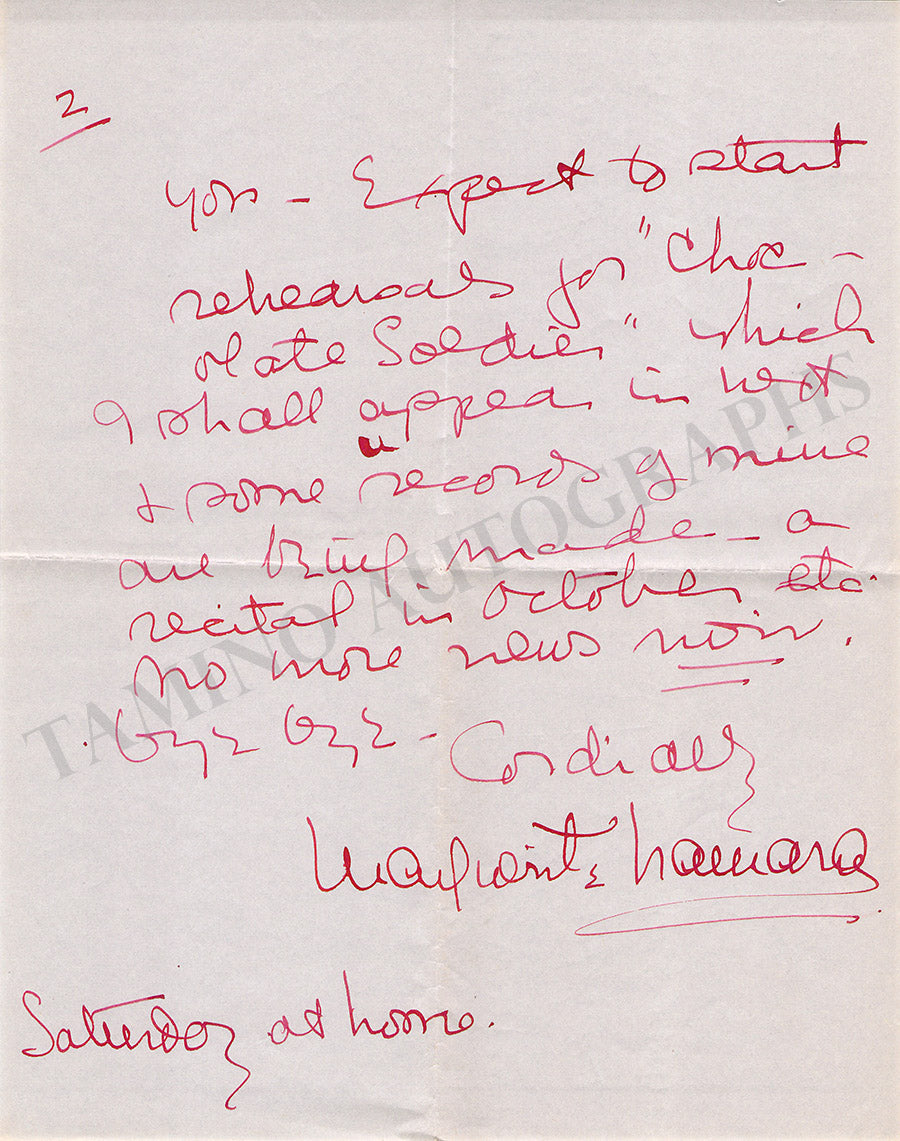 2
you - Expect to start
rehearsals for "Choc -
olate Soldier" which
I shall appear in next
& some records of mine
are being made - a
recital in October etc.
No more news now.
bye bye -
Cordially
Marguerite Namara
Saturday at home.
TAMINO AUTOGRAPHS